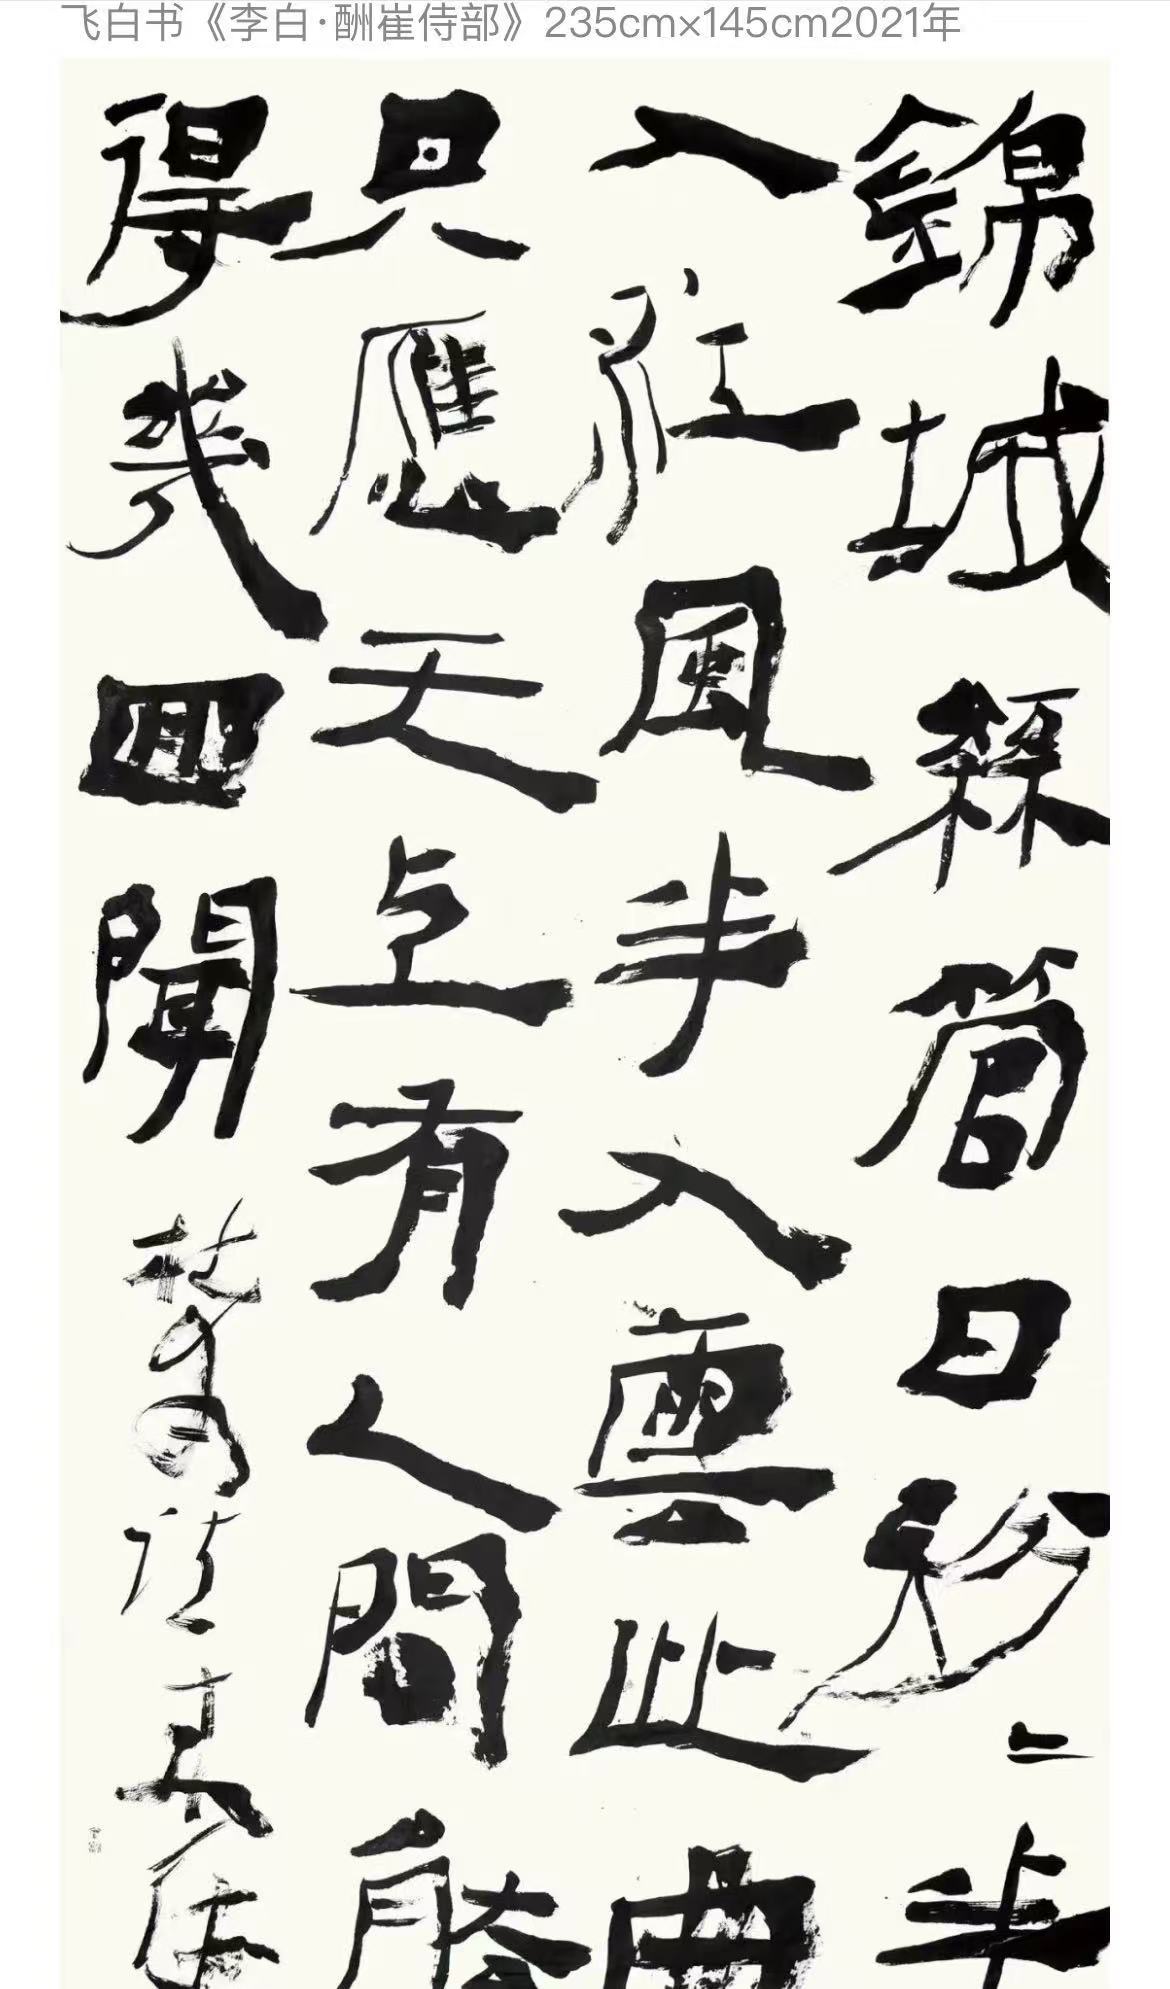 飞白书《李白·酬崔侍部》235cm×145cm2021年
錦城絲管日紛〻半
入江風半入雲此曲
只應天上有人間能
得幾回聞 杜甫詩